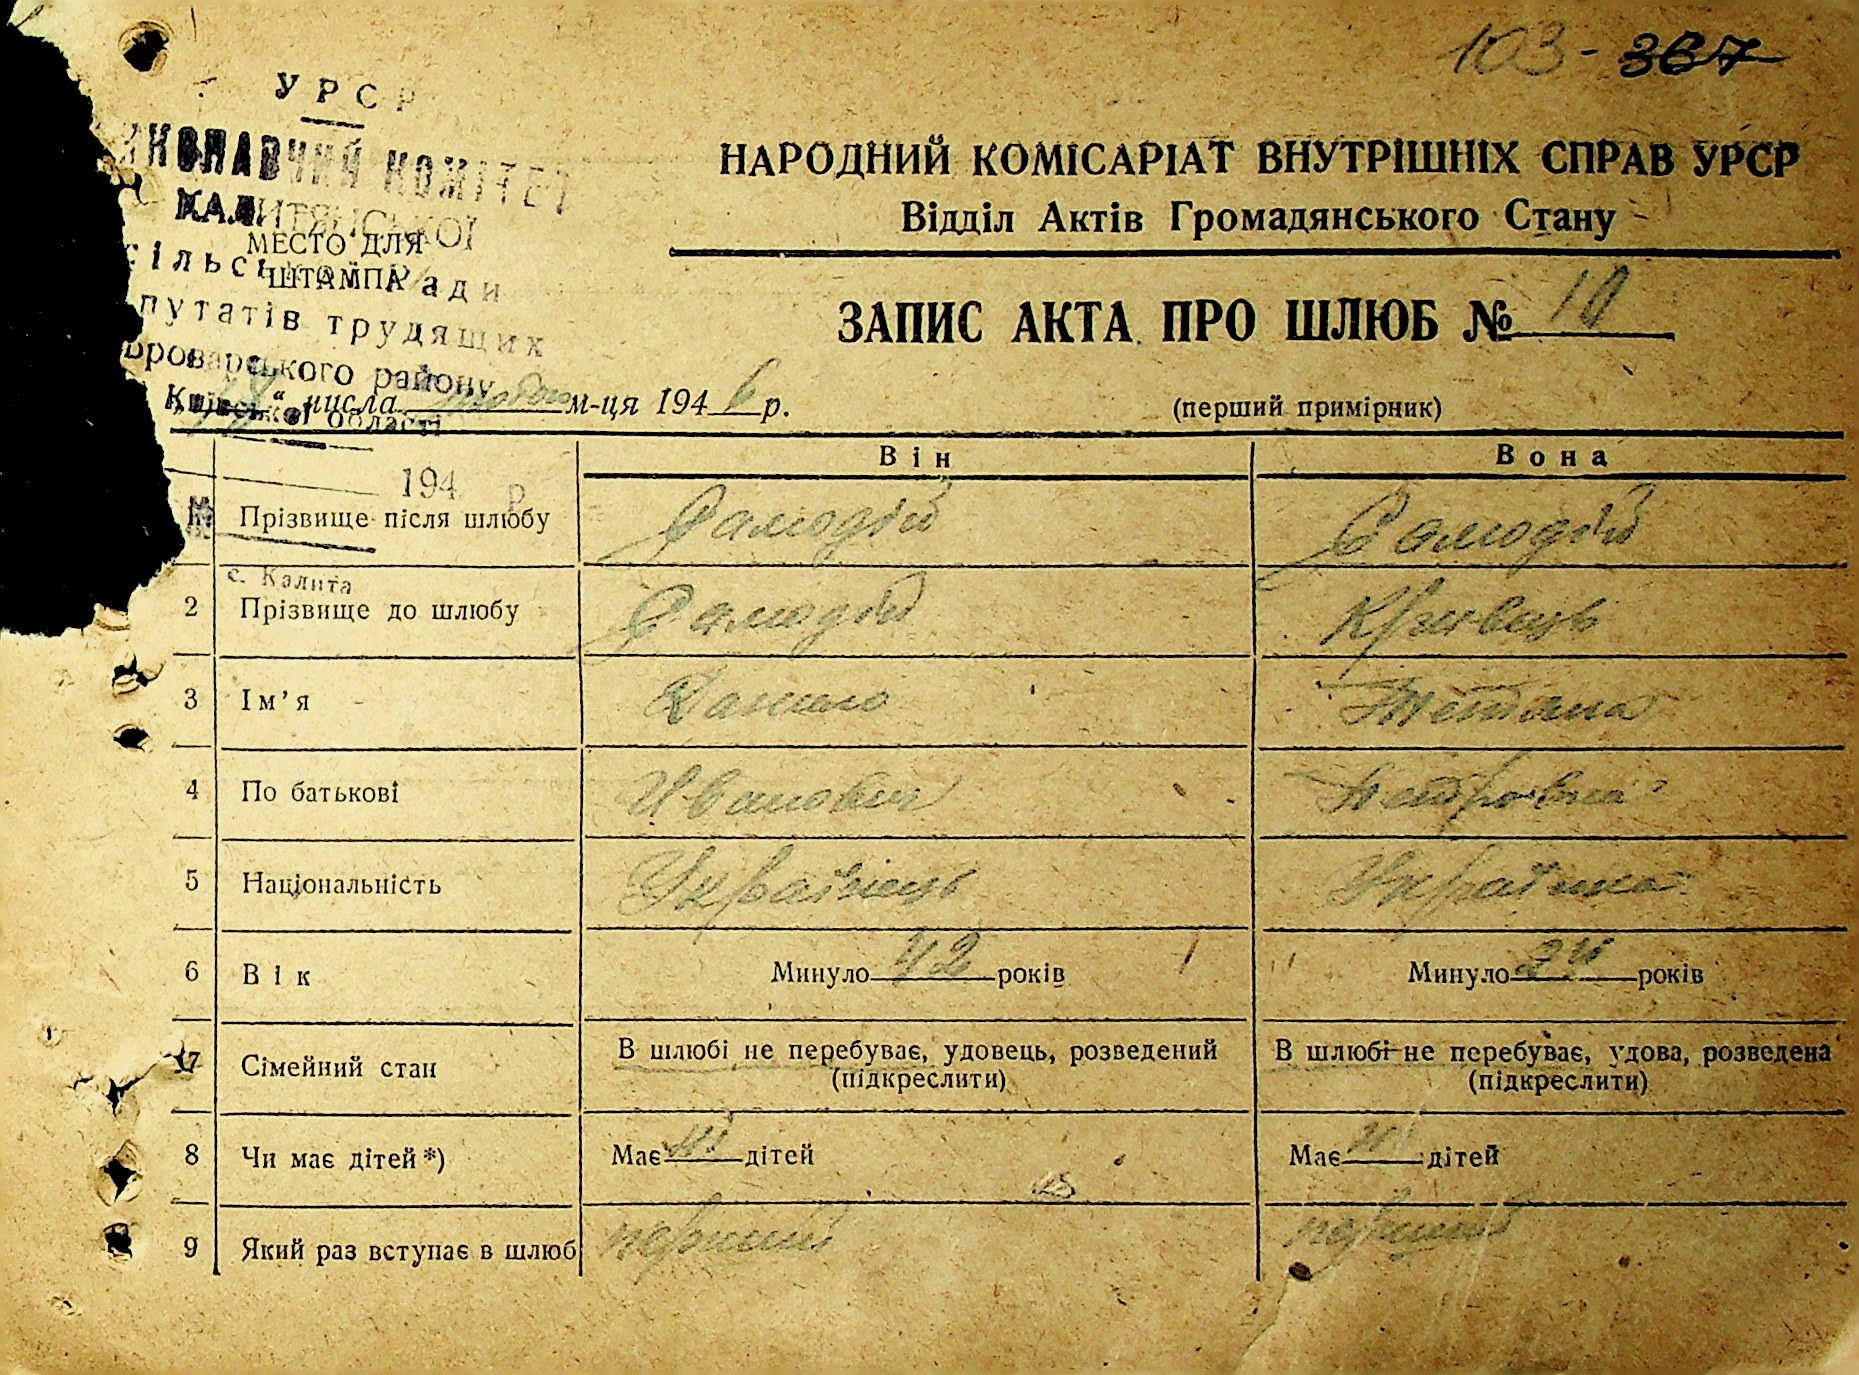 103 - 367
УРСР
КОНАВЧИЙ КОМІТЕТ
КАЛИТЯНСЬКОЇ
МЕСТО ДЛЯ
ШТАМПА
путатів трудящих
роварського району
Київської області
194 р.
с. Калита
НАРОДНИЙ КОМІСАРІАТ ВНУТРІШНІХ СПРАВ УРСР
Відділ Актів Громадянського Стану
ЗАПИС АКТА ПРО ШЛЮБ № 10
числа м-ця 1946 р.
(перший примірник)
Він Вона
Прізвище після шлюбу Самодій Самодій
2 Прізвище до шлюбу Самодій Кривець
3 Ім’я Данило Тетяна
4 По батькові Иванович Петровна
5 Національність Українець Українка
6 Вік Минуло 42 років Минуло 24 років
7 Сімейний стан В шлюбі не перебуває, удовець, розведений В шлюбі не перебуває, удова, розведена
(підкреслити) (підкреслити)
8 Чи має дітей *) Має дітей Має дітей
9 Який раз вступає в шлюб перший перший